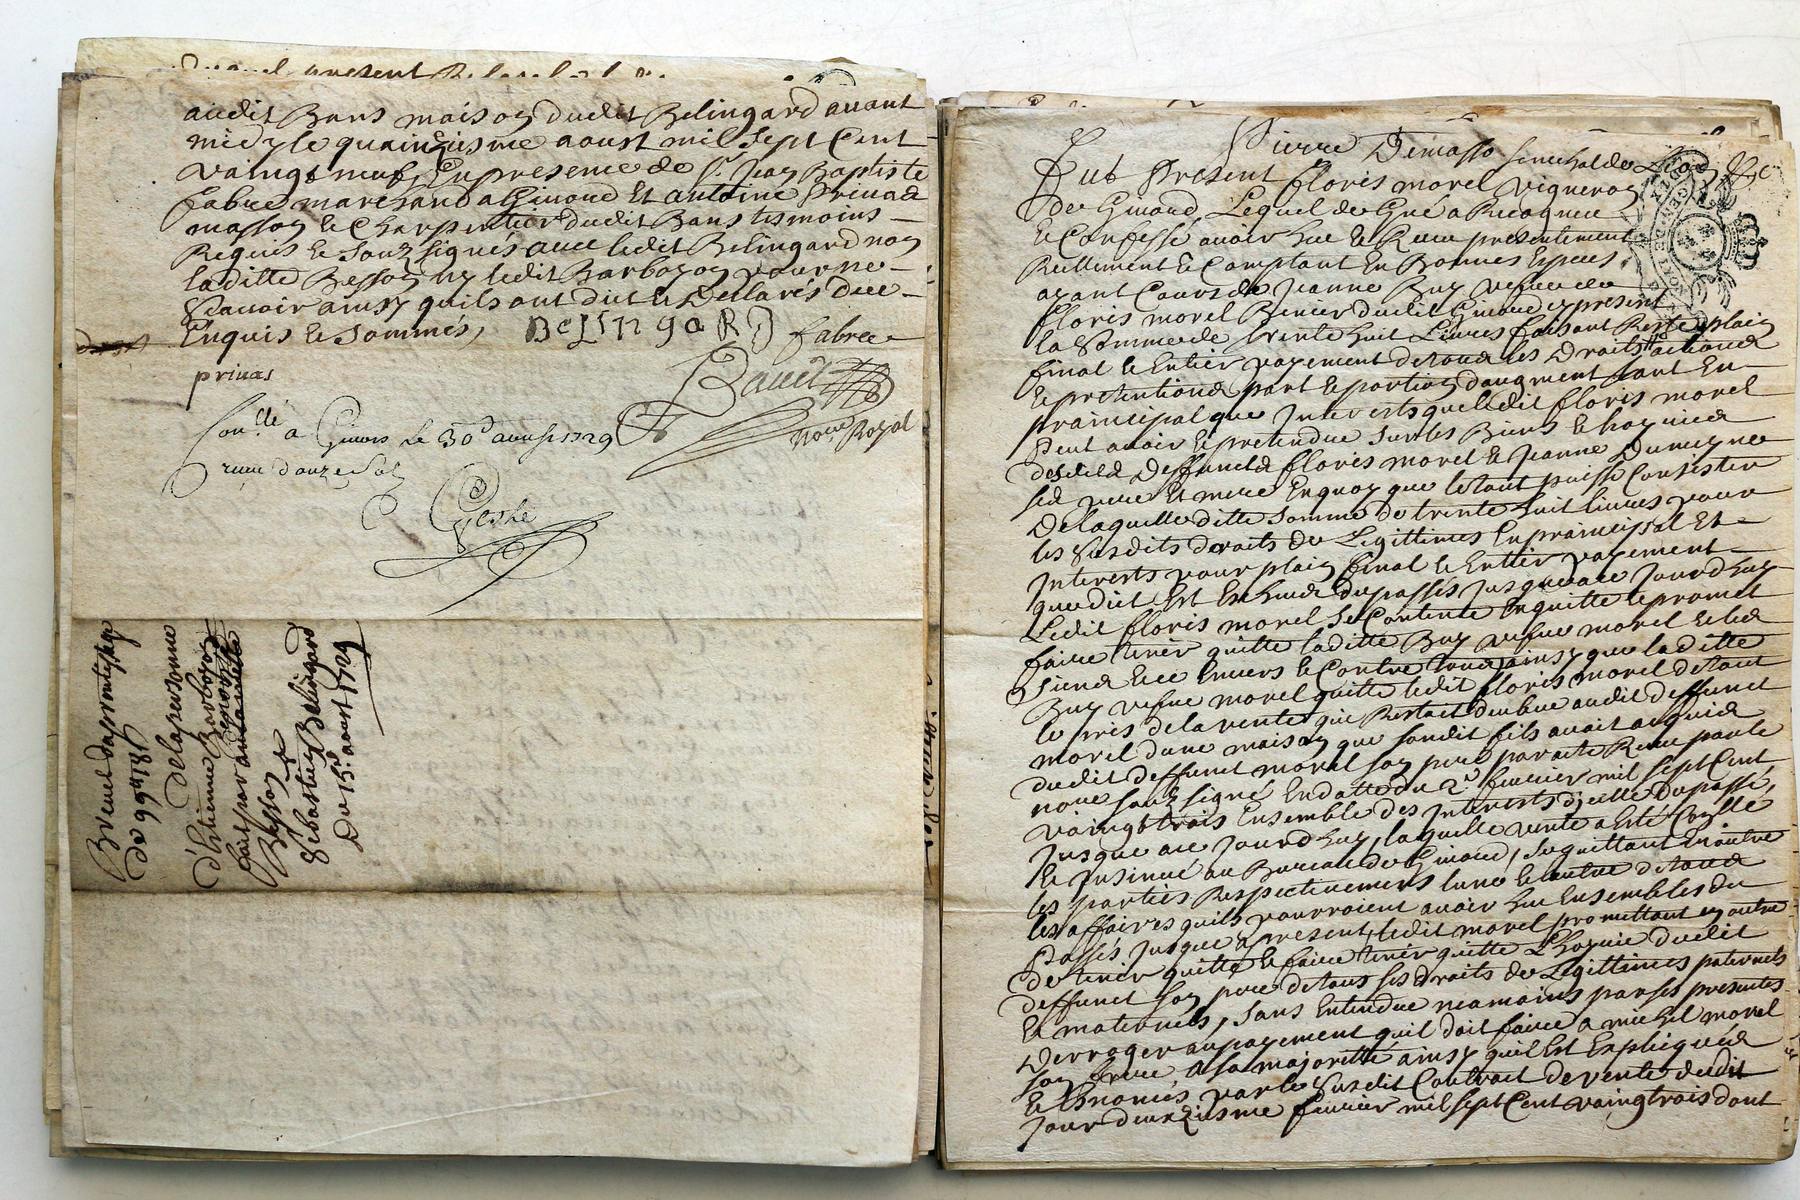 audit Bans maison dudit Belingard avant
midy le quainziesme aoust mil sept Cent
vaingt neuf, En presence de Sr. Jean Baptiste
fabre marchand a Givord Et antoine Privad
masson & Charpentier dudit Bans tesmoins
Requis & Souzsignés avec ledit Belingard non
laditte Besson ny ledit Barbozon pour ne
Scavoir ainsy quils ont dict & Declarés de ce
Enquis & Sommés,
BelingaRD fabre
privas
a Givors le 30e aoust 1729
Notre Royal
Brevet daprentissage
de la personne
d'Estienne Barbozon
fait par
Besson
Sébastien Belingard
Du 15e. aoust 1729
Pierre Dimasso
fut Present floris morel vigneron
de Givord, Lequel de Gré a Recogneu
& Confessé avoir heu & Receu presentement
Reellement & Comptant En Bonnes Especes
ayant Cours de Jeanne Buy vefve de
floris morel Benier dudit Givord, y present
la Somme de trente huit Livres faisant Reste plain
final & Entier payement de tous les Droits actions
& pretentions part & portion daugment tant En
praincipal que Interests que ledit floris morel
Peut avoir & pretendre Sur les Biens & hoyries
desdits Deffuncts floris morel & Jeanne
ses pere Et mere En quoy que le tout puisse Consister
De laquelle ditte Somme de trente huit livres pour
les Susdits droits de Legittimes En praincipal Et
Interests pour plain final & Entier payement
que dict Est Et heus du passés Jusques a ce Jourdhuy
Ledit floris morel Se Contente En quitte & promet
faire tenir quitte laditte Buy vefve morel Et les
Siens Et ce Envers & Contre tous, ainsy que laditte
Buy vefve morel quitte ledit floris morel de tout
le pris de la vente qui Restoit deub au audit deffunct
morel dune maison que sondit fils avoit acquis
dudit deffunct morel Son pere par acte Receu par le
nore. souz signé En datte du 2e. fevrier mil sept Cent
vaingt trois Ensemble des Interests dicelle du passé,
Jusque a ce Jourdhuy, laquelle vente a Esté Conllé
& Insinué au Bureau de Givord, Se quittant En outre
les parties Respectivement lune & lautre de tous
les affaires quils pourroient avoir heu Ensembles du
Passés Jusque a present, ledit morel promettant en outre
de tenir quitte & faire tenir quitte L'hoyrie dudit
deffunct Son pere de tous ses droits de Legittimes paternels
& maternels, Sans Entendre neamoins par ses presentes
Derroger au payement quil doit faire a michel morel
Son frere a Sa majorité ainsy quil Est Expliqués
& Enonces par le Susdit Contrait de vente dudit
Jour deuxziesme fevrier mil sept Cent vaingt trois dont